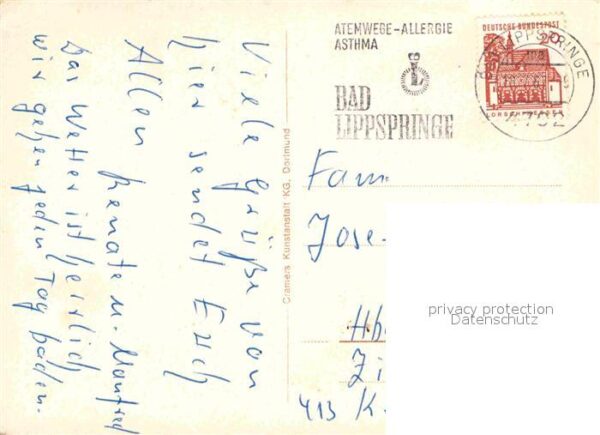 Viele Grüße von
hier sendet Euch
Allen Renate u. Manfred
Das Wetter ist herrlich
wir gehen jeden Tag baden.
Cramers Kunstanstalt KG. Dortmund
ATEMWEGE-ALLERGIE
ASTHMA
BAD
LIPPSPRINGE
DEUTSCHE BUNDESPOST
20
BAD LIPPSPRINGE
4792
Fam
Jose
Hbo
Zi
413 K
privacy protection
Datenschutz